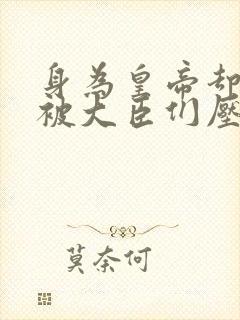 身為皇帝却
被大臣们壓
莫奈何